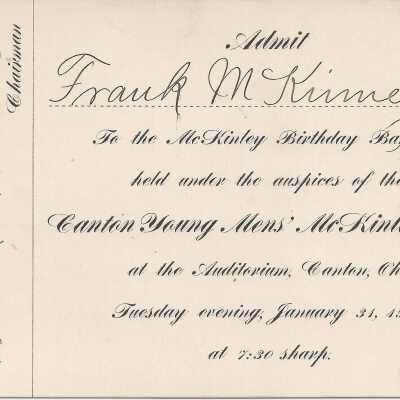 Chairman
Admit
Frank McKinne
To the McKinley Birthday Ba
held under the auspices of the
Canton Young Mens' McKinl
at the Auditorium, Canton, Oh
Tuesday evening, January 31, 19
at 7:30 sharp.